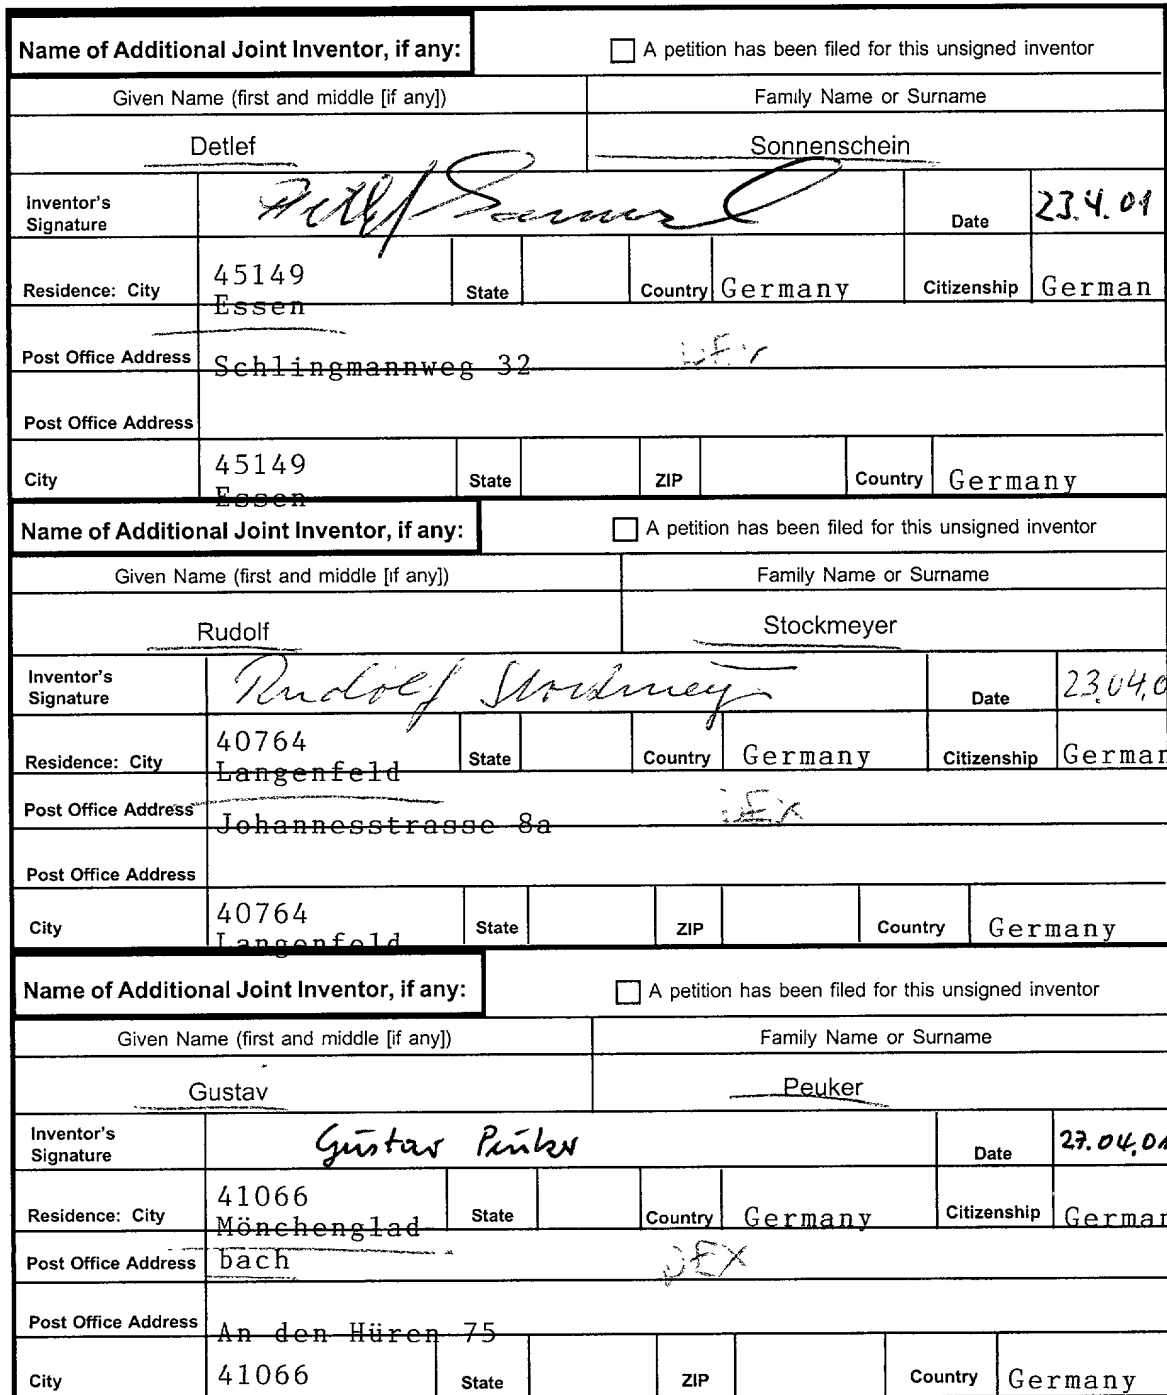 Name of Additional Joint Inventor, if any: A petition has been filed for this unsigned inventor
Given Name (first and middle [if any]) Family Name or Surname
Detlef Sonnenschein
Inventor's Signature Detlef Date 23.4.01
Residence: City 45149 Essen State Country Germany Citizenship German
Post Office Address Schlingmannweg 32 DEX
Post Office Address
City 45149 Essen State ZIP Country Germany
Name of Additional Joint Inventor, if any: A petition has been filed for this unsigned inventor
Given Name (first and middle [if any]) Family Name or Surname
Rudolf Stockmeyer
Inventor's Signature Rudolf Stockmeyer Date 23.04.0
Residence: City 40764 Langenfeld State Country Germany Citizenship German
Post Office Address Johannesstrasse 8a DEX
Post Office Address
City 40764 Langenfeld State ZIP Country Germany
Name of Additional Joint Inventor, if any: A petition has been filed for this unsigned inventor
Given Name (first and middle [if any]) Family Name or Surname
Gustav Peuker
Inventor's Signature Gustav Peuker Date 27.04.01
Residence: City 41066 Mönchenglad State Country Germany Citizenship German
Post Office Address bach DEX
Post Office Address An den Hüren 75
City 41066 State ZIP Country Germany